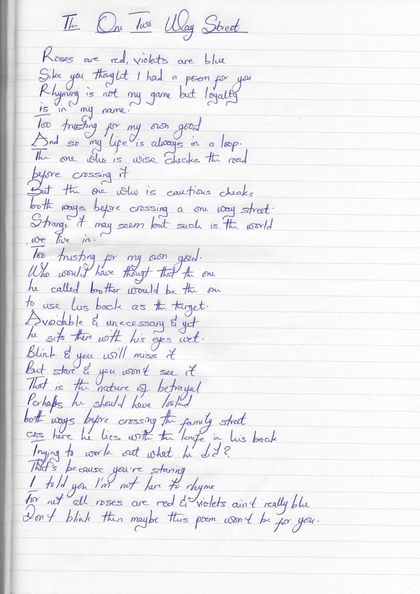 The One Two Way Street
Roses are red, violets are blue
Like you thought I had a poem for you
Rhyming is not my game but loyalty
is in my name.
Too trusting for my own good
And so my life is always in a loop.
The one who is wise checks the road
before crossing it
But the one who is cautious checks
both ways before crossing a one way street.
Strange it may seem but such is the world
we live in.
Too trusting for my own good.
Who would have thougt that the one
he called brother would be the one
to use his back as the target.
Avoidable & unecessary & yet
he sits there with his eyes wet.
Blink & you will miss it
But stare & you won't see it
That is the nature of betrayal
Perhaps he should have looked
both ways before crossing the family street
cos here he lies with the knife in his back
Trying to work out what he did?
That's because you're staring
I told you I'm not here to rhyme
For not all roses are red & violets ain't really blue
Don't blink then maybe this poem won't be for you.